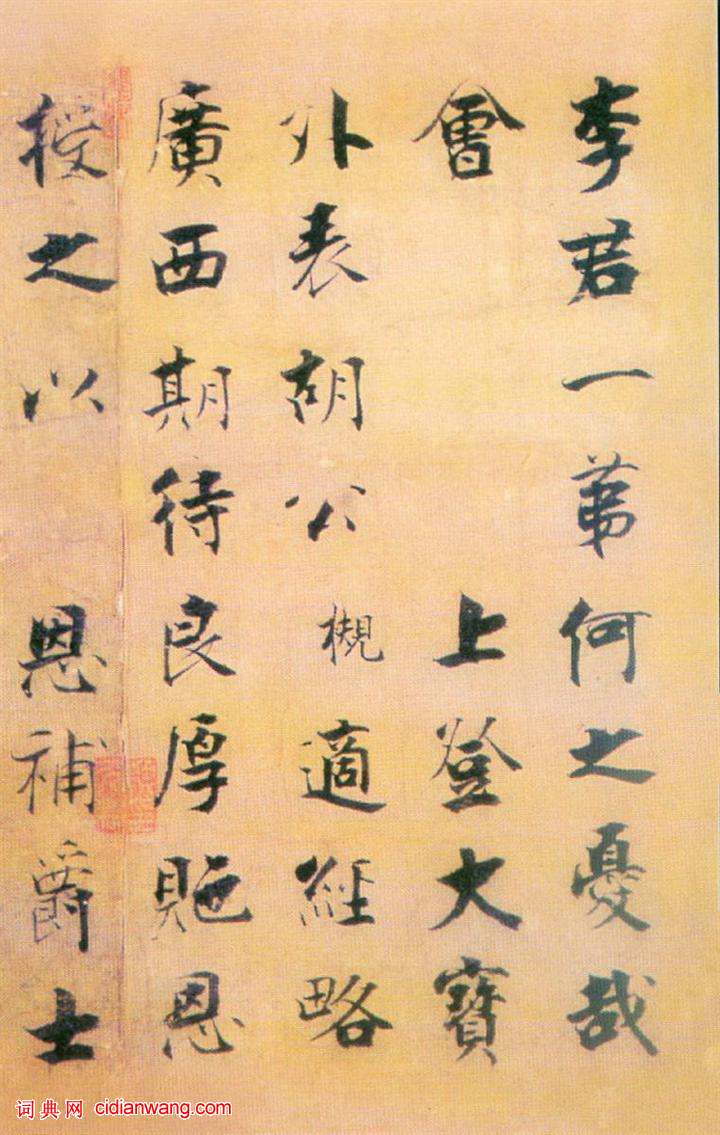 李君一第何之憂哉
會 上登大寶
外表胡公槻適經略
廣西期待良厚貤恩
授之以 恩補爵士
词典网 cidianwang.com